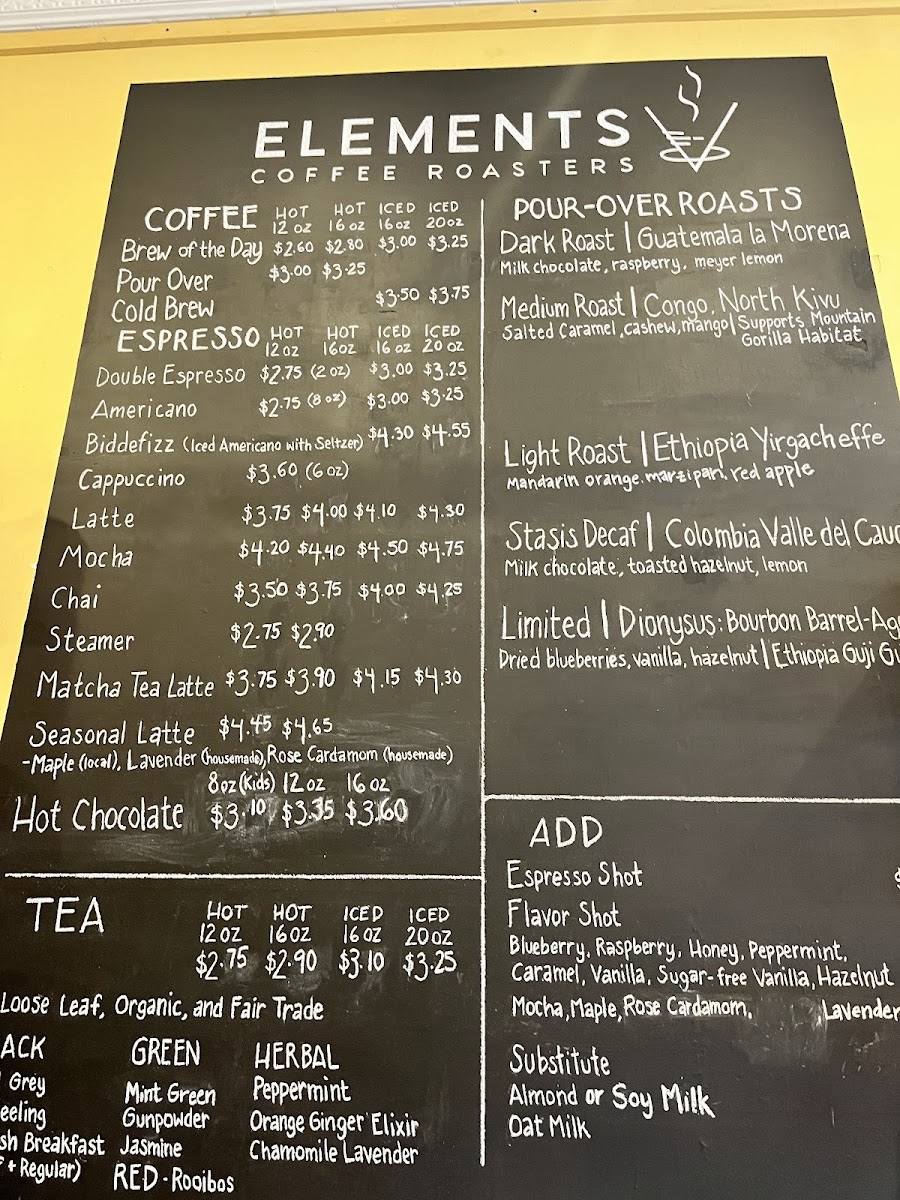 ELEMENTS
COFFEE ROASTERS
COFFEE HOT 12 oz HOT 16 oz ICED 16 oz ICED 20 oz
Brew of the Day $2.60 $2.80 $3.00 $3.25
Pour Over $3.00 $3.25
Cold Brew $3.50 $3.75
ESPRESSO HOT 12 oz HOT 16 oz ICED 16 oz ICED 20 oz
Double Espresso $2.75 (2 oz) $3.00 $3.25
Americano $2.75 (8 oz) $3.00 $3.25
Biddefizz (Iced Americano with Seltzer) $4.30 $4.55
Cappuccino $3.60 (6 oz)
Latte $3.75 $4.00 $4.10 $4.30
Mocha $4.20 $4.40 $4.50 $4.75
Chai $3.50 $3.75 $4.00 $4.25
Steamer $2.75 $2.90
Matcha Tea Latte $3.75 $3.90 $4.15 $4.30
Seasonal Latte $4.45 $4.65
-Maple (local), Lavender (housemade), Rose Cardamom (housemade)
8oz (Kids) 12 oz 16 oz
Hot Chocolate $3.10 $3.35 $3.60
TEA HOT 12 OZ HOT 16 OZ ICED 16 OZ ICED 20 OZ
$2.75 $2.90 $3.10 $3.25
Loose Leaf, Organic, and Fair Trade
ACK GREEN HERBAL
Grey Mint Green Peppermint
eeling Gunpowder Orange Ginger Elixir
sh Breakfast Jasmine Chamomile Lavender
+ Regular) RED - Rooibos
POUR-OVER ROASTS
Dark Roast | Guatemala la Morena
Milk chocolate, raspberry, meyer lemon
Medium Roast | Congo, North Kivu
Salted Caramel, cashew, mango | Supports Mountain
Gorilla Habitat
Light Roast | Ethiopia Yirgacheffe
Mandarin orange. marzipan. red apple
Stasis Decaf | Colombia Valle del Cauc
Milk chocolate, toasted hazelnut, lemon
Limited | Dionysus: Bourbon Barrel-Ag
Dried blueberries, vanilla, hazelnut | Ethiopia Guji Gu
ADD
Espresso Shot $
Flavor Shot
Blueberry, Raspberry, Honey, Peppermint,
Caramel, Vanilla, Sugar-free Vanilla, Hazelnut
Mocha, Maple, Rose Cardamom, , Lavender
Substitute
Almond or Soy Milk
Oat Milk